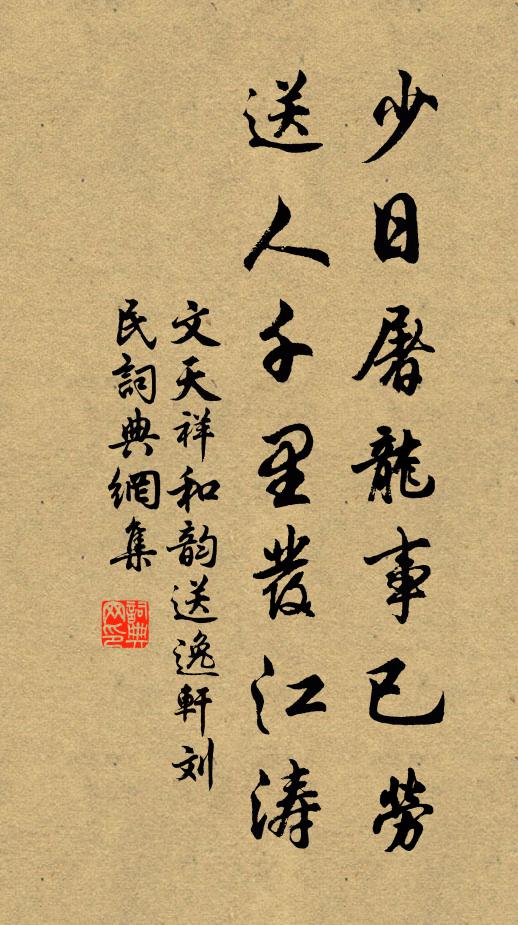 少日屠龍事已勞
送人千里發江涛
文天祥和韵送逸軒刘
民詞典網集
詞典
网印